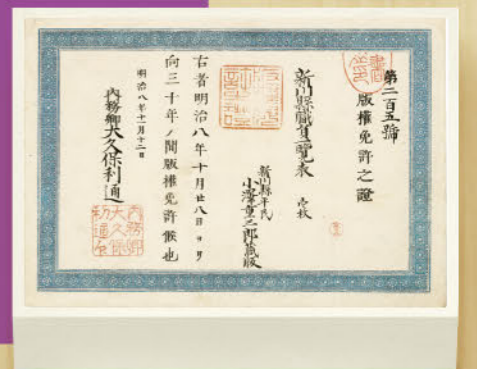 第二百五號
版權免許之證
新川縣職員一覽表 壱枚
新川縣平民
小澤重三郎藏版
右者明治八年十月廿八日ヨリ
向三十年ノ間版權免許候也
明治八年十一月十二日
內務卿大久保利通